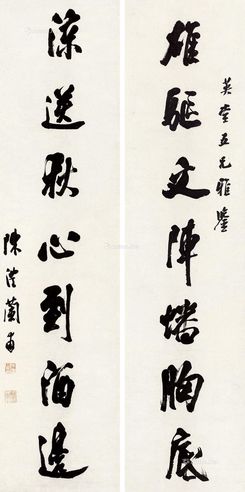 英堂五兄雅鑒
雄驅文陣蟠胸底
送秋心到酒邊
陳澧蘭甫